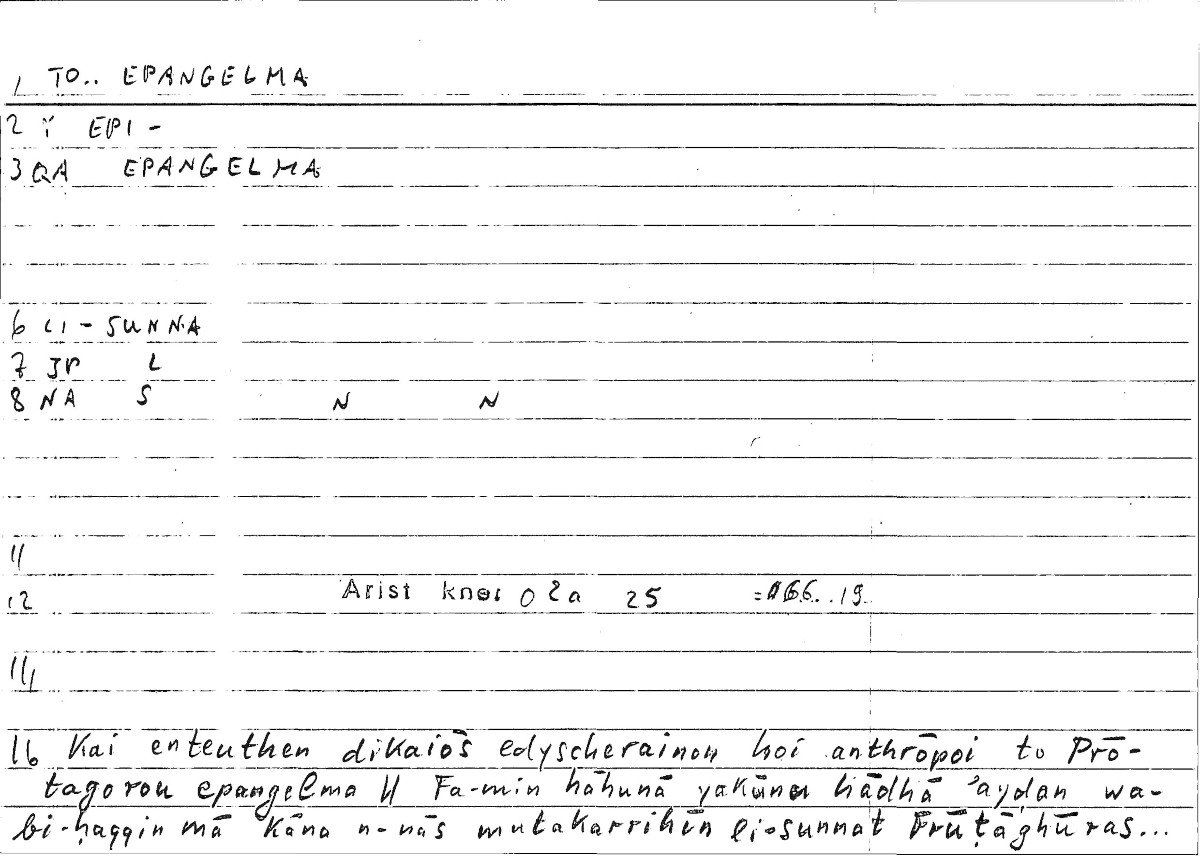 1 TO.. EPANGELMA
2 Ï EPI -
3 QA EPANGELMA
6 LI - SUNNA
7 JP L
8 NA S N N
11
12 Arist 02a 25 = 166..19
16 Kai enteuthen dikaiōs edyscherainon hoi anthrōpoi to Prō-
tagorou epangelma // Fa-min hāhunā yakūnu hādhā ʾayḍan wa-
bi-ḥaqqin mā kāna n-nās mutakarrihīn li-sunnat Frūṭāghūras...